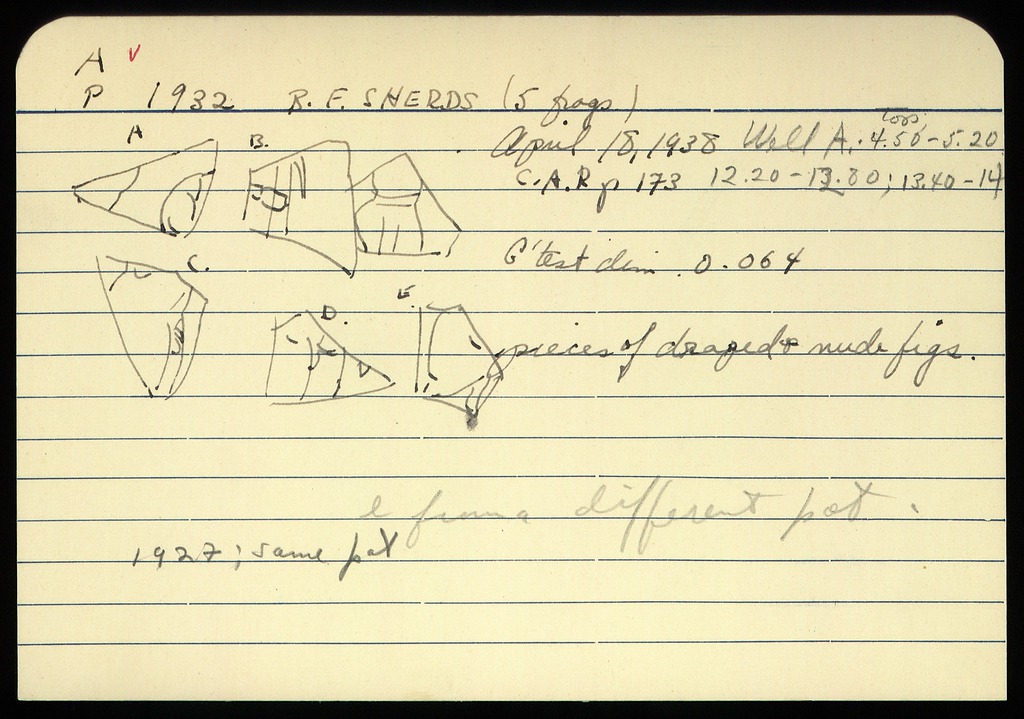 A v
P 1932 R. F. SHERDS (5 frags.)
April 18, 1938 Well A. 4.50-5.20
C.A.R p 173 12.20-13.80; 13.40-14
A
B.
G'test dim. 0.064
C.
D.
E.
pieces of draped & nude figs.
e from a different pot.
1927; same pot